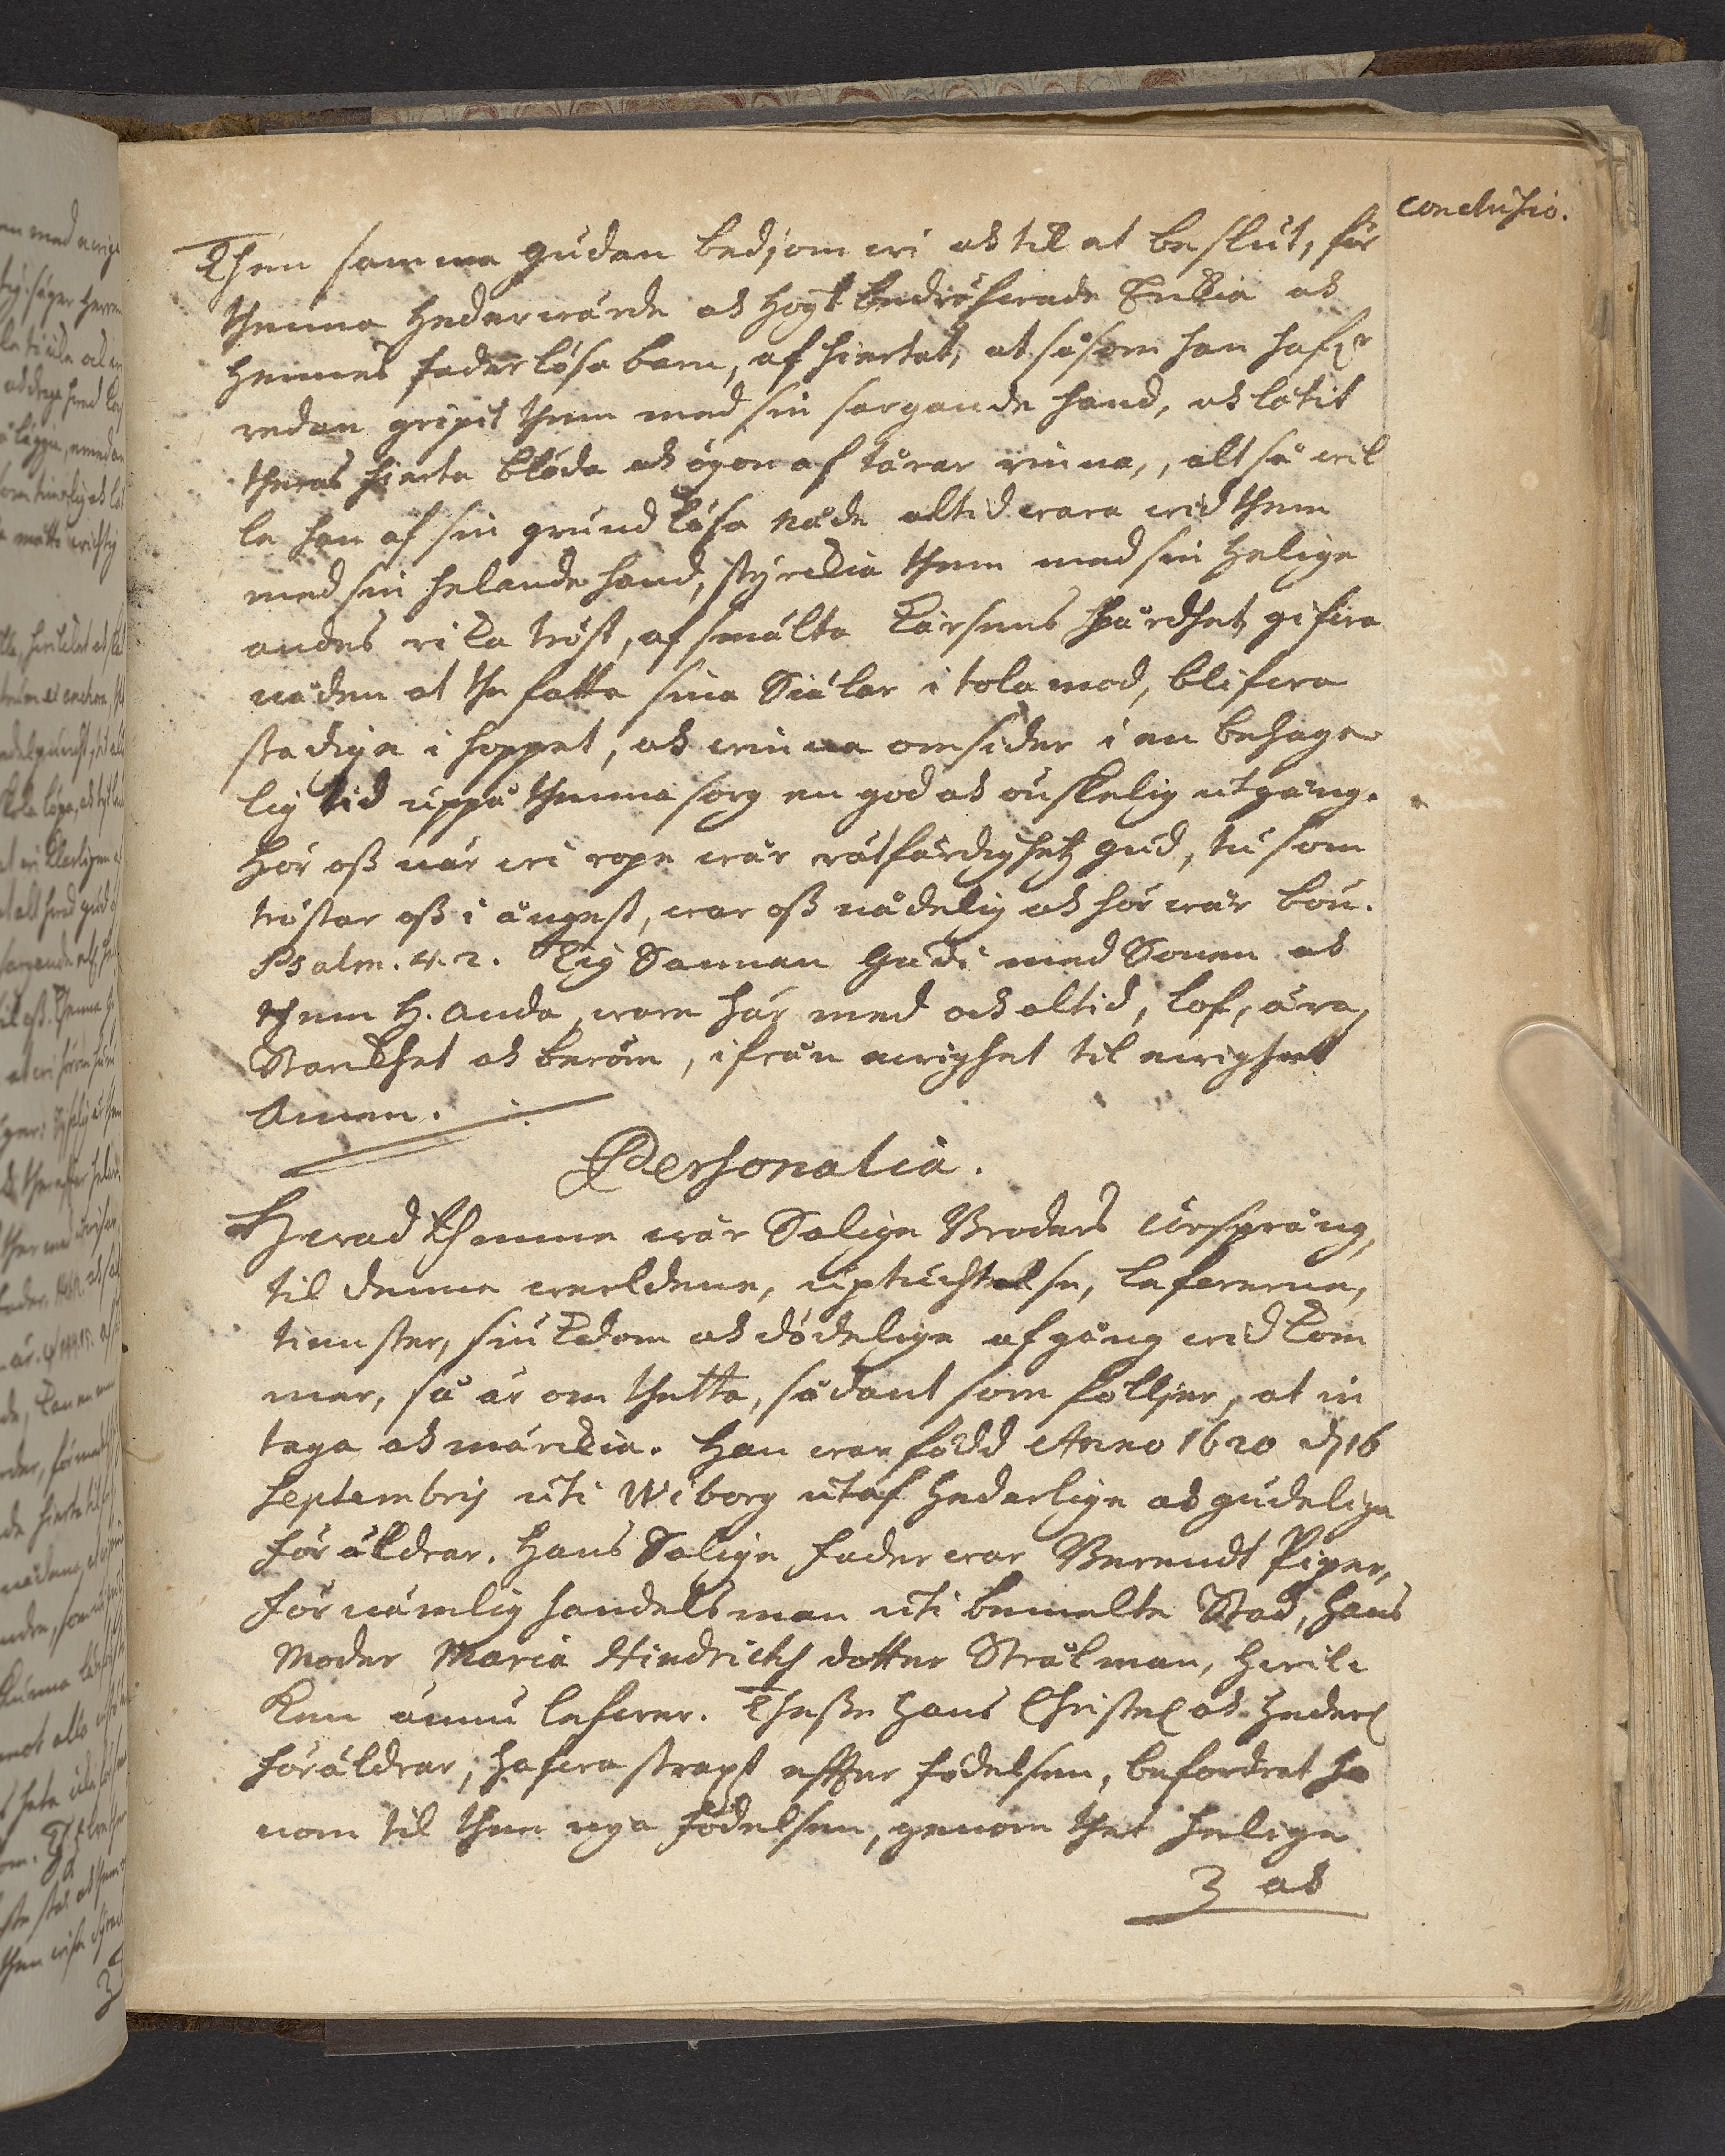 conclusio.
Then samma guden bedjom wi ok til at beslut, för
thenna hederwärde ok högt bedröfwade Enkia ok
hennes faderlösa barn, af hiertat, at såsom han hafr
redan gripit them med sin sargande hand, ok låtit
theras hierta blöda ok ögon af tårar rinna, altså wil
le han af sin grundlösa Nåde altid wara wid them
med sin helande hand, styrckia them med sin Helige
andes rika tröst, afsmälta korsens hårdhet, gifwa
nåden at the fatta sina Siälar i tolamod, blifwa
stadige i hoppet, ok winna omsider i en behage
lig tid uppå thenna sorg en god ok önskelig utgång.
Hör oß när wi rope wår rätfärdighetz gud, tu som
tröstar oß i ångest, war oß nådelig ok hör wår bön.
Psalm. 4. 2. Tig Sannan Gudi med Sonen ok
them H. Anda, ware här med ock altid, lof, ära,
Starkhet ok beröm, ifrån ewighet til ewighet
Amen.
Personalia.
Hwad thenne wår Salige Broders ursprång,
til denne werldene, uptuchtelse, lefwerne,
tienster, siukdom ok dödelige afgång wid kom
mer, så är om thetta, sådant som följer, at in
taga ok märckia. Han war född Anno 1620 d. 16
Septembris uti Wiborg utaf hederlige ok gudelige
föräldrar. Hans Salige fader war Berendt Piper,
förnämlig handelsman uti bemelte Stad, hans
Moder Maria Hindrichs dotter Strålman, hwil
ken ännu lefwer. Theße hans Christel ok heder
föräldrar, hafwa straxt effter födelsen, befordrat ho
nom til then nya födelsen, genom thet helige
3 ok